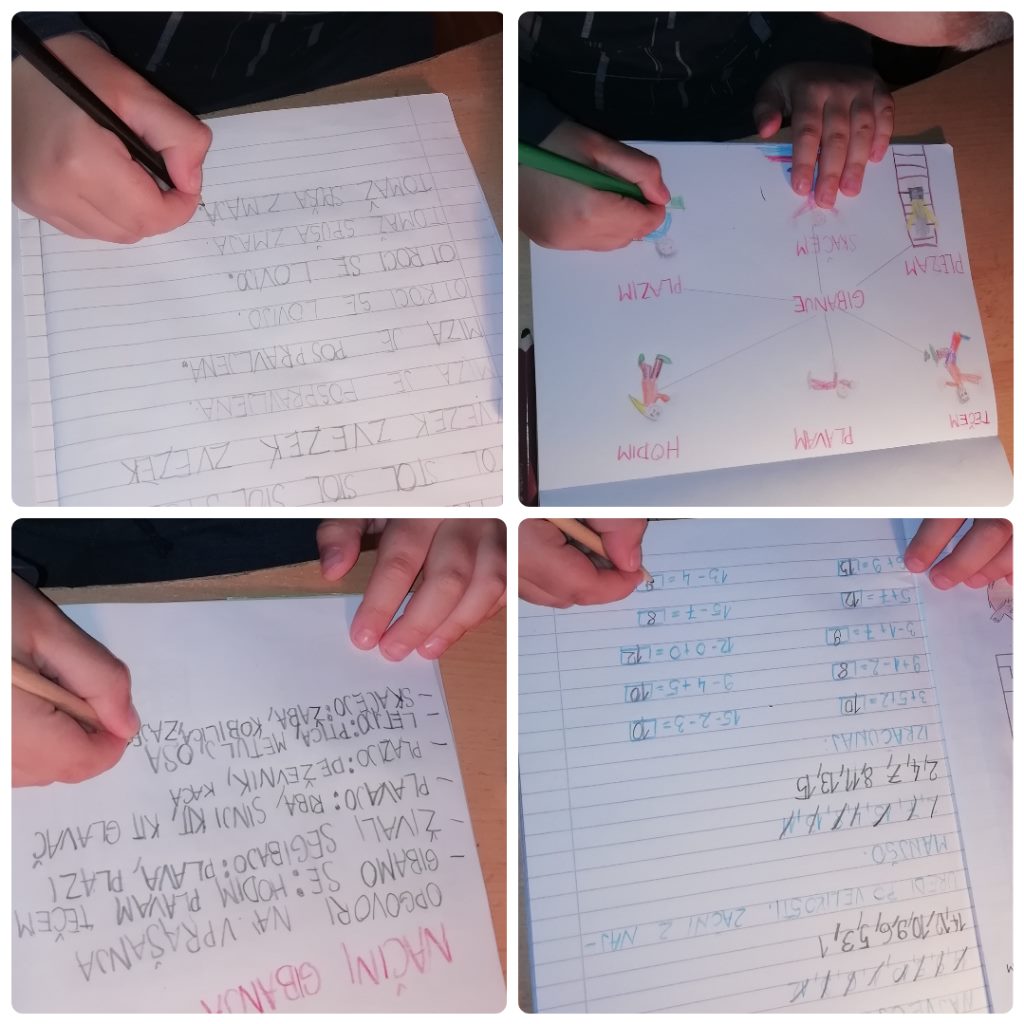 STOL STOL STOL
ZVEZEK ZVEZEK ZVEZEK
MIZA JE POSPRAVLJENA.
MIZA JE POSPRAVLJENA.
OTROCI SE LOVIJO.
OTROCI SE LOVIJO.
TOMAŽ SPUŠA ZMAJA.
TOMAŽ SPUŠA ZMAJA.
TEČEM PLAVAM HODIM
GIBANJE
PLEZAM SKAČEM PLAZIM
NAČINI GIBANJA
ODGOVORI NA VPRAŠANJA
GIBAMO SE: HODIM PLAVAM TEČEM
- ŽIVALI SE GIBAJO: PLAVA, PLAZI
- PLAVAJO: RIBA, SINJI KIT, KIT GLAVAČ
- PLAZJO: DEŽEVNIK, KAČA
- LETIJO: PTICA, METULJ, OSA
- SKAČEJO: ŽABA, KOBILICA, ZAJE
14,12,10,9,6,5,3,1
UREDI PO VELIKOSTI. ZAČNI Z NAJ-
MANJŠO.
2,4,7,8,11,13,15
IZRAČUNAJ:
3+5+2=10 15-2-3=10
9+1-2=8 9-4+5=10
3-1+7=9 12-0+0=12
5+7=12 15-7=8
6+9=15 13-4=9